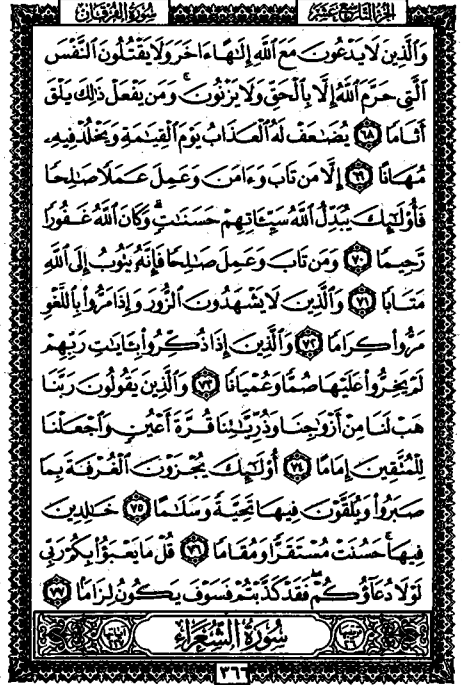 سُورَةُ الفُرْقَانِ الجُزْءُ التَّاسِعَ عَشَرَ
وَٱلَّذِينَ لَا يَدْعُونَ مَعَ ٱللَّهِ إِلَٰهًا ءَاخَرَ وَلَا يَقْتُلُونَ ٱلنَّفْسَ
ٱلَّتِي حَرَّمَ ٱللَّهُ إِلَّا بِٱلْحَقِّ وَلَا يَزْنُونَ ۚ وَمَن يَفْعَلْ ذَٰلِكَ يَلْقَ
أَثَامًا ٦٨ يُضَٰعَفْ لَهُ ٱلْعَذَابُ يَوْمَ ٱلْقِيَٰمَةِ وَيَخْلُدْ فِيهِۦ
مُهَانًا ٦٩ إِلَّا مَن تَابَ وَءَامَنَ وَعَمِلَ عَمَلًا صَٰلِحًا
فَأُو۟لَٰٓئِكَ يُبَدِّلُ ٱللَّهُ سَيِّـَٔاتِهِمْ حَسَنَٰتٍ ۗ وَكَانَ ٱللَّهُ غَفُورًا
رَّحِيمًا ٧٠ وَمَن تَابَ وَعَمِلَ صَٰلِحًا فَإِنَّهُۥ يَتُوبُ إِلَى ٱللَّهِ
مَتَابًا ٧١ وَٱلَّذِينَ لَا يَشْهَدُونَ ٱلزُّورَ وَإِذَا مَرُّوا۟ بِٱللَّغْوِ
مَرُّوا۟ كِرَامًا ٧٢ وَٱلَّذِينَ إِذَا ذُكِّرُوا۟ بِـَٔايَٰتِ رَبِّهِمْ
لَمْ يَخِرُّوا۟ عَلَيْهَا صُمًّا وَعُمْيَانًا ٧٣ وَٱلَّذِينَ يَقُولُونَ رَبَّنَا
هَبْ لَنَا مِنْ أَزْوَٰجِنَا وَذُرِّيَّٰتِنَا قُرَّةَ أَعْيُنٍ وَٱجْعَلْنَا
لِلْمُتَّقِينَ إِمَامًا ٧٤ أُو۟لَٰٓئِكَ يُجْزَوْنَ ٱلْغُرْفَةَ بِمَا
صَبَرُوا۟ وَيُلَقَّوْنَ فِيهَا تَحِيَّةً وَسَلَٰمًا ٧٥ خَٰلِدِينَ
فِيهَا ۚ حَسُنَتْ مُسْتَقَرًّا وَمُقَامًا ٧٦ قُلْ مَا يَعْبَؤُا۟ بِكُمْ رَبِّي
لَوْلَا دُعَآؤُكُمْ ۖ فَقَدْ كَذَّبْتُمْ فَسَوْفَ يَكُونُ لِزَامًۢا ٧٧
سُورَةُ الشُّعَرَاءِ
٣٦٦